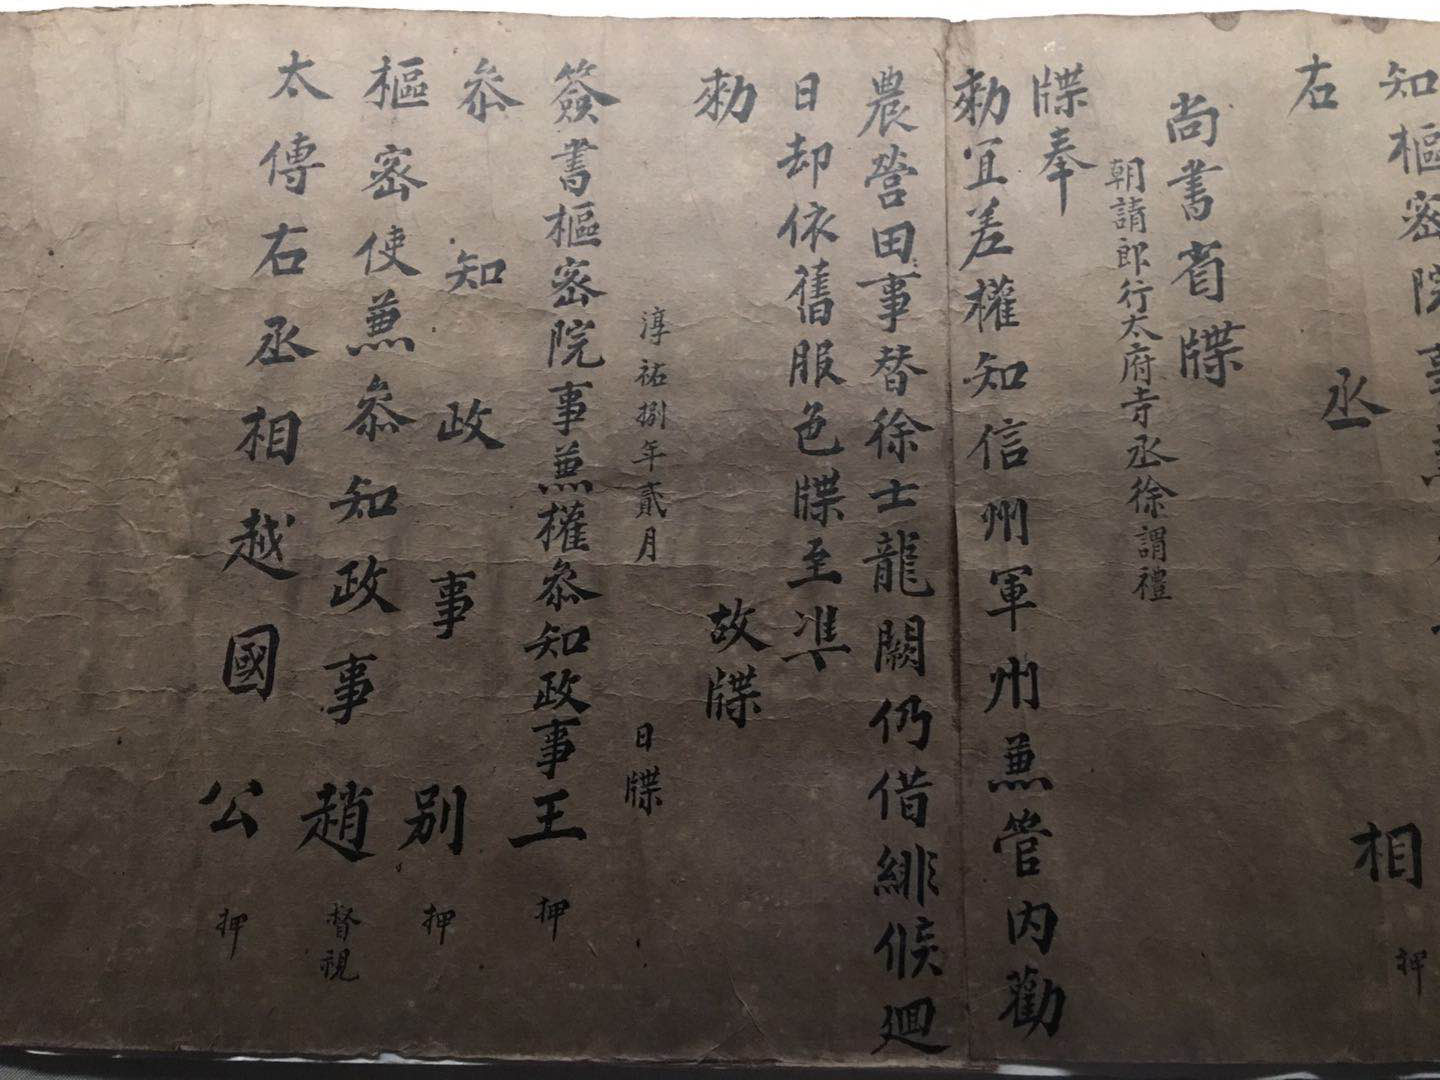 知樞密院事兼
右丞相 押
尚書省牒
朝請郎行太府寺丞徐謂禮
牒奉
勑宜差權知信州軍州兼管內勸
農營田事替徐士龍闕仍借緋候廻
日却依舊服色牒至準
勑 故牒
淳祐捌年貳月 日牒
簽書樞密院事兼權叅知政事王 押
叅知政事别 押
樞密使兼叅知政事趙 督視
太傅右丞相越國公 押